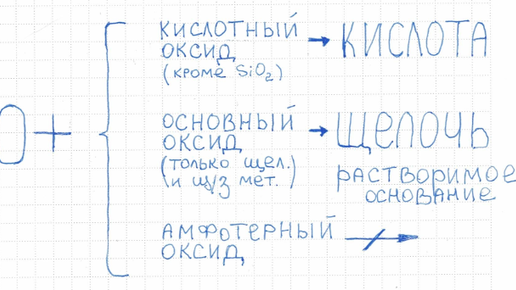 О +
КИСЛОТНЫЙ
ОКСИД
(кроме SiO₂)
→ КИСЛОТА
ОСНОВНЫЙ
ОКСИД
(только щел.)
(и щЗ мет.)
→ ЩЕЛОЧЬ
РАСТВОРИМОЕ
ОСНОВАНИЕ
АМФОТЕРНЫЙ
ОКСИД